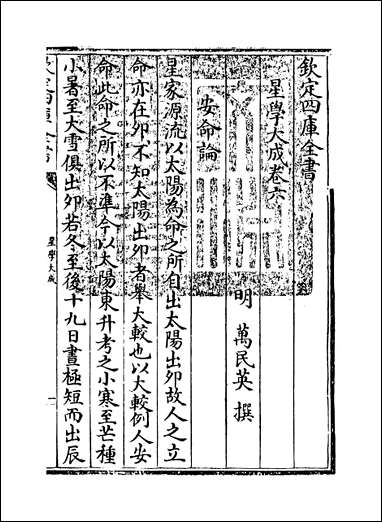 欽定四庫全書
星學大成卷六
明 萬民英 撰
安命論
星家源流以太陽為命之所自出太陽出卯故人之立
命亦在卯不知太陽出卯者舉大較也以大較例人安
命此命之所以不準今以太陽東升考之小寒至芒種
小暑至大雪俱出卯若冬至後十九日晝極短而出辰
欽定四庫全書
星學大成
一